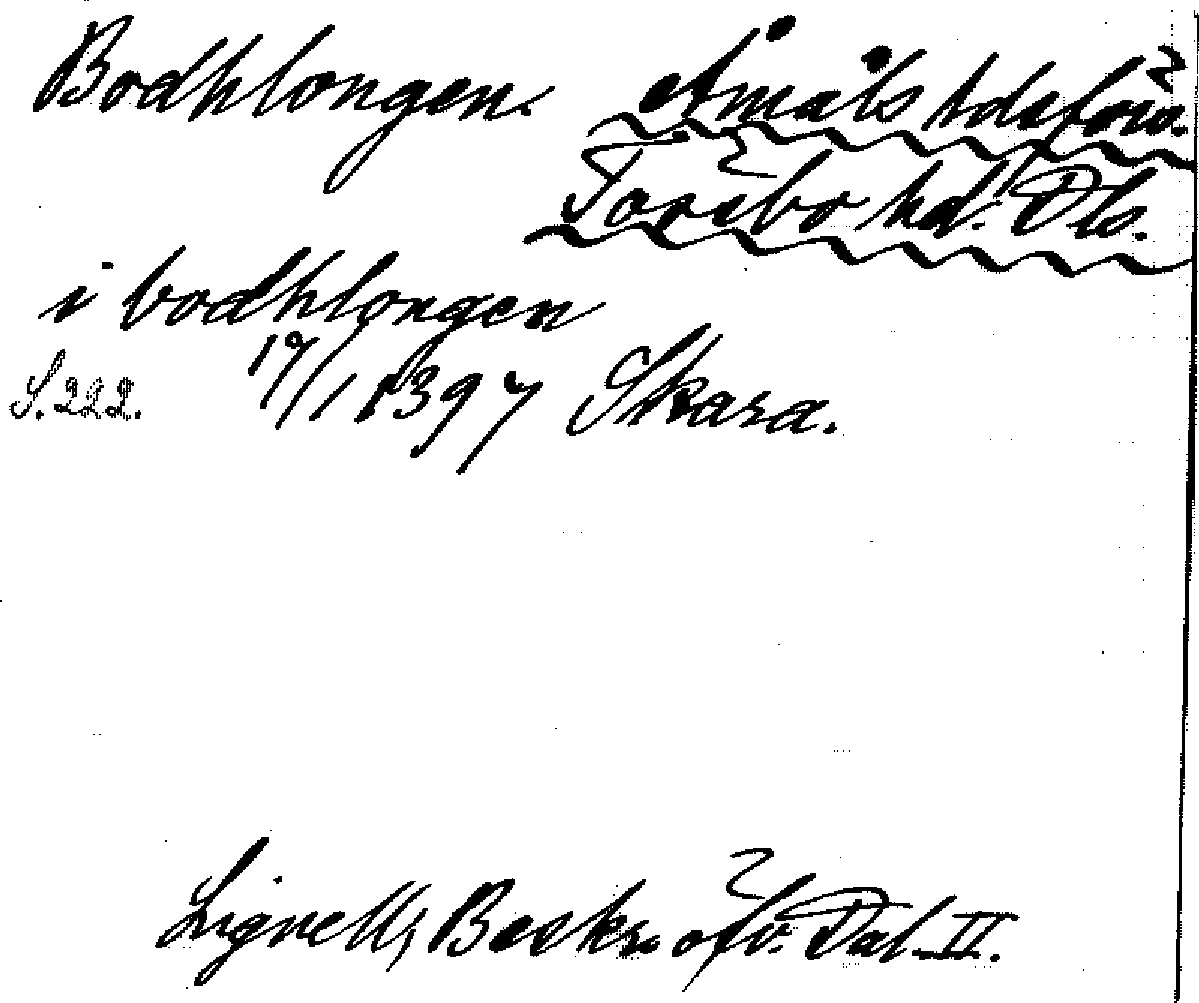 Bodhlongen. Åmåls tdsförs.
Tössbo hd. Dls.
i bodhlongen
S. 222. 17/1 1397 Skara.
Lignell, Beskr. öfv. Dal. II.